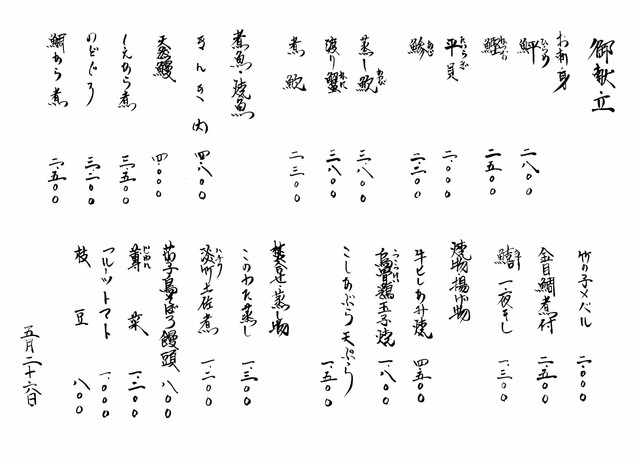 御献立
お刺身
鮃 二.八〇〇
鰹 二.五〇〇
平貝 二.〇〇〇
鯵 二.三〇〇
蒸し鮑 三.八〇〇
渡り蟹 三.八〇〇
煮鮑 二.三〇〇
煮魚・焼魚
きんき 四.八〇〇
天然鰻 四.〇〇〇
のどぐろ 三.二〇〇
鯛かぶと煮 二.五〇〇
竹の子メバル 二.〇〇〇
金目鯛煮付 二.五〇〇
一夜干し 一.三〇〇
焼物揚げ物
烏骨鶏玉子焼 一.八〇〇
こしあぶら天ぷら 一.五〇〇
蒸し物
このわた蒸し 一.三〇〇
土佐煮 一.二〇〇
茄子鳥そぼろ饅頭 八〇〇
蓴菜 一.二〇〇
フルーツトマト 一.〇〇〇
枝豆 八〇〇
五月二十六日